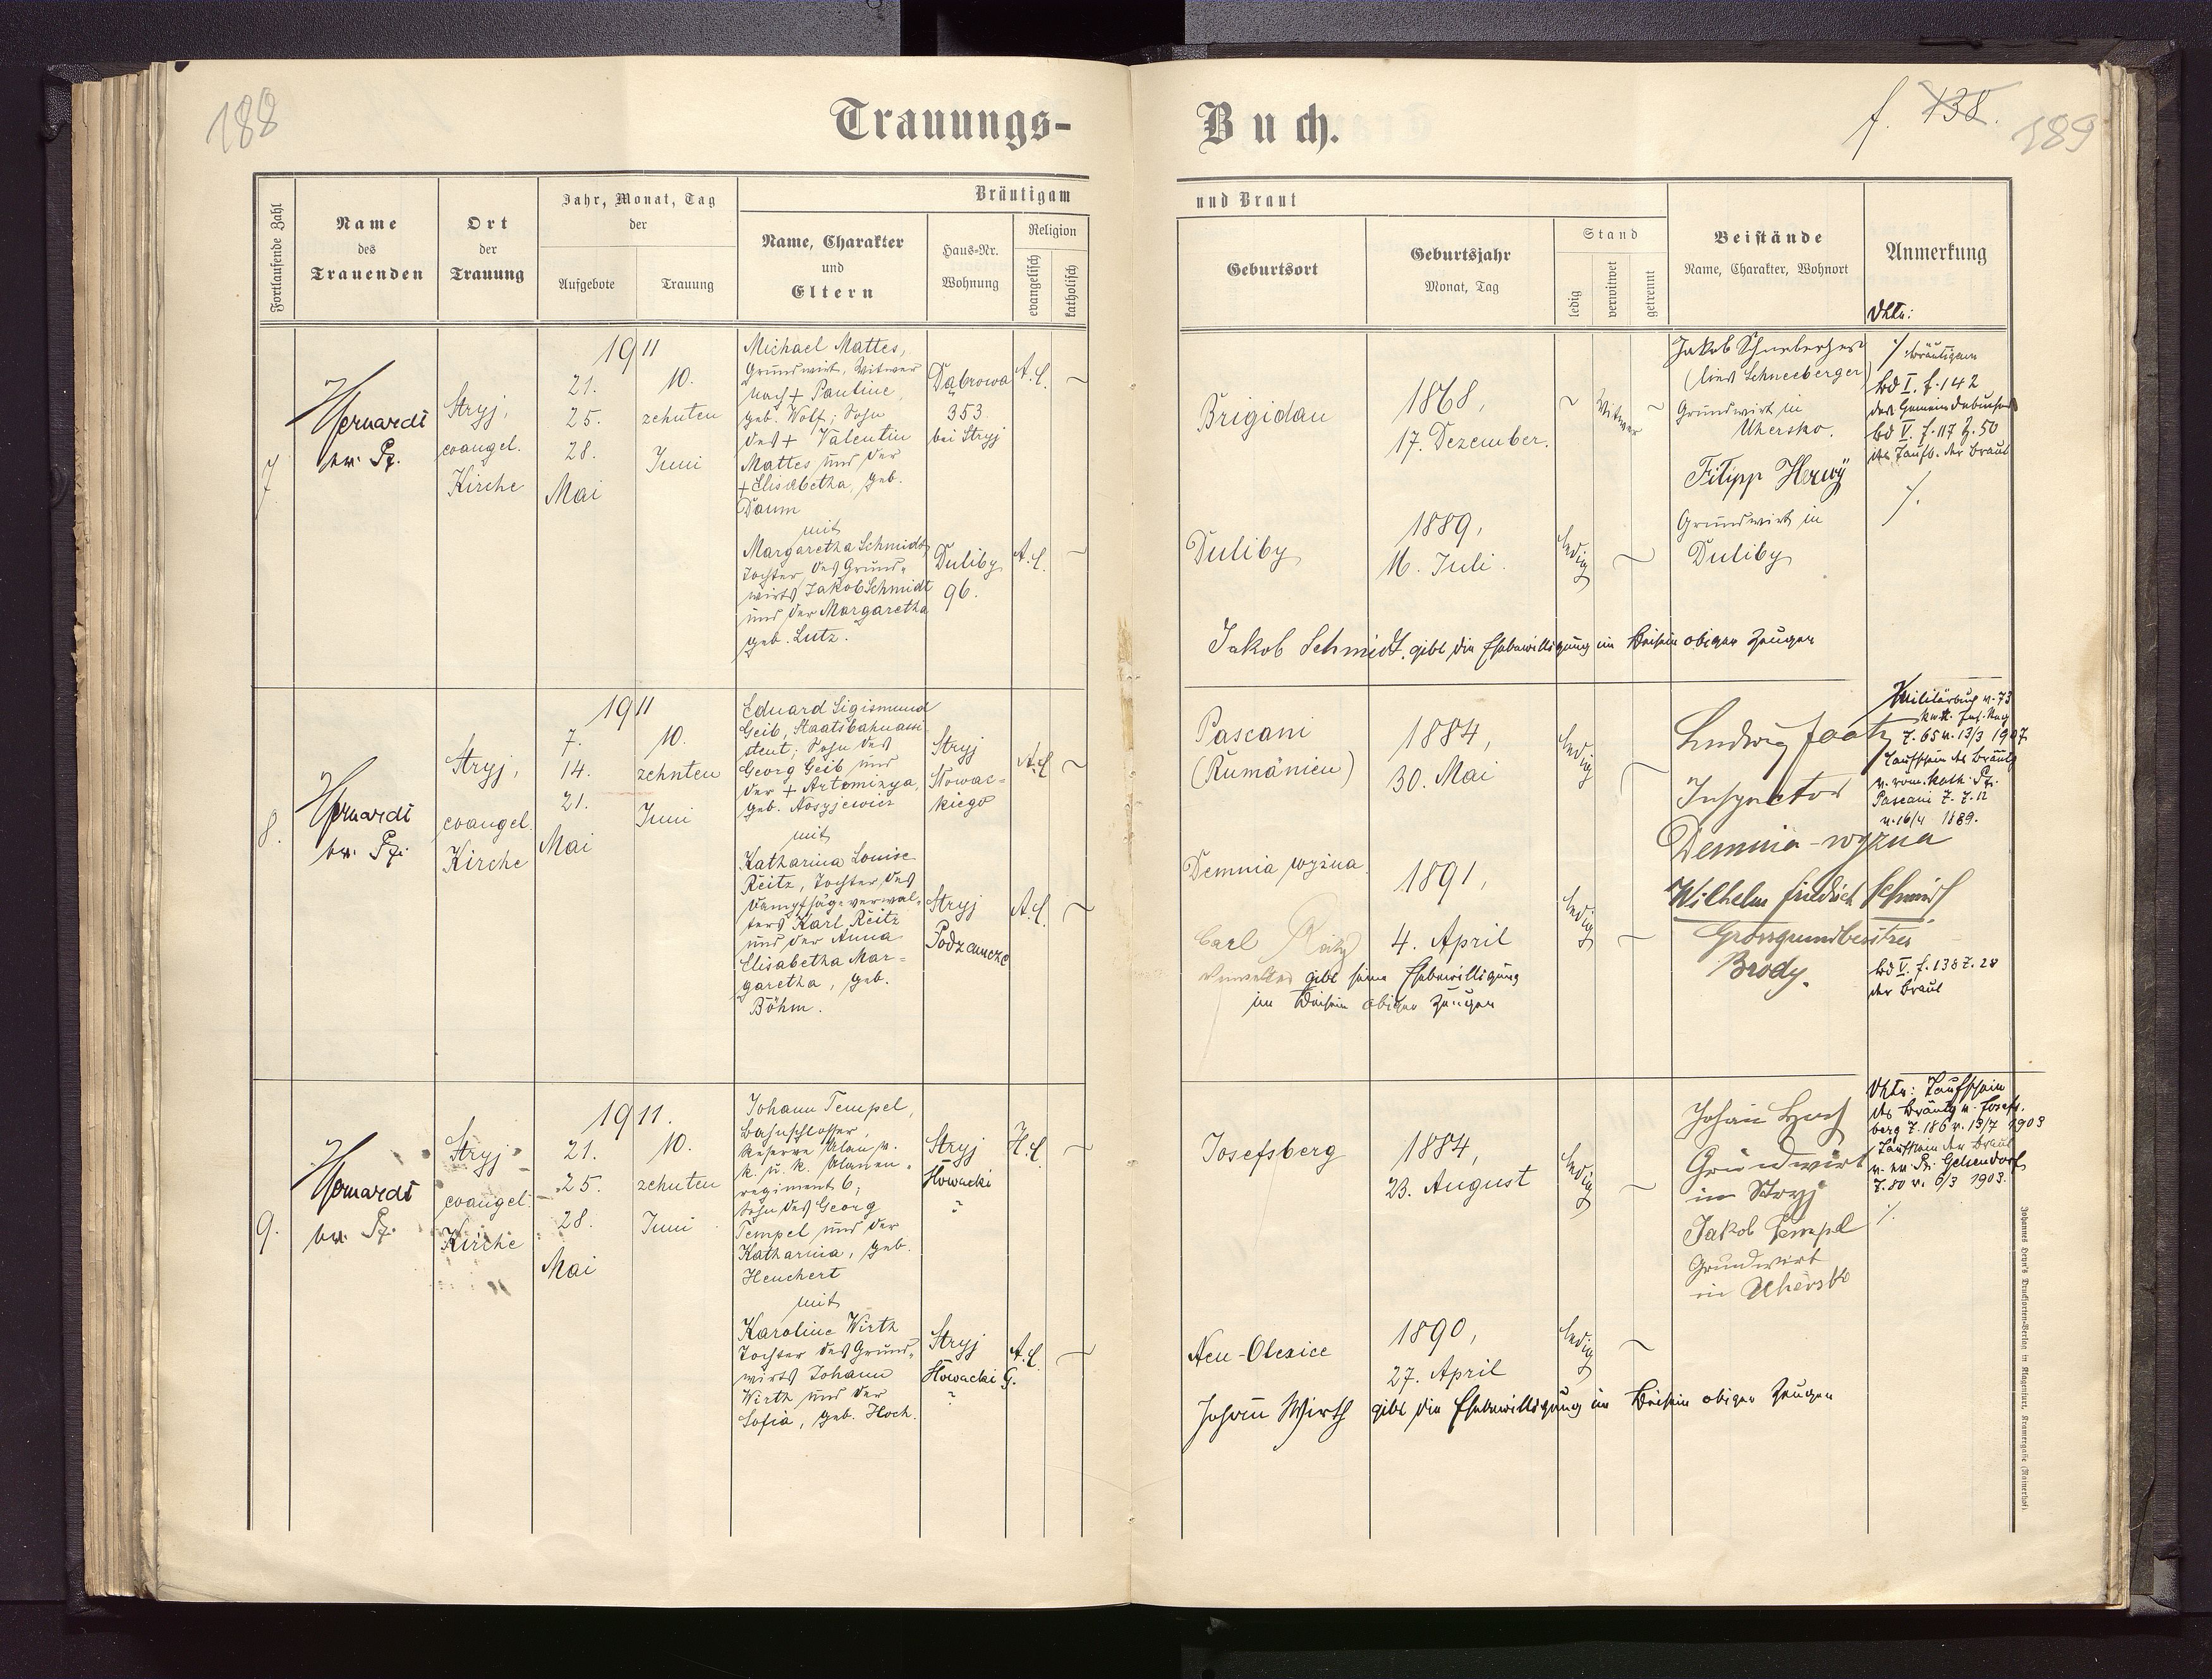 188
Trauungs-
Buch.
f. 138.
189
Fortlaufende Zahl
Name
des
Trauenden
Ort
der
Trauung
Jahr, Monat, Tag
der
Aufgebote
Trauung
Bräutigam
Name, Charakter
und
Eltern
Haus-Nr.
Wohnung
Religion
evangelisch
katholisch
und Braut
Geburtsort
Geburtsjahr
Monat, Tag
Stand
ledig
verwitwet
getrennt
Beistände
Name, Charakter, Wohnort
Anmerkung
7
ev. Pf.
Stryj,
evangel.
Kirche
1911
21.
25.
28.
Mai
10.
zehnten
Juni
Michael Mattes,
Grundwirt, Witwer
nach + Pauline,
geb. Wolf; Sohn
des + Valentin
Mattes und der
+ Elisabetha, geb.
Daum
mit
Margaretha Schmidt
Tochter des Grund-
wirts Jakob Schmidt
und der Margaretha
geb. Lutz.
Dąbrowa
353.
bei Stryj
A.C.
Duliby
96.
A.C.
Brigidau
1868,
17. Dezember.
Witwer
Duliby
1889,
16. Juli.
ledig
Jakob Schneeberger
(lies Schneeberger)
Grundwirt in
Uhersko.
Filipp Herwÿ
Grundwirt in
Duliby
Bräutigam
bd I. f. 142
bd V. f. 117 Z. 50
des Taufb. der Braut
Jakob Schmidt. gibt die Ehebewilligung im Beisein obiger Zeugen
8.
ev. Pf.
Stryj,
evangel.
Kirche
1911
7.
14.
21.
Mai
10.
zehnten
Juni
Eduard Sigismund
Geib, Staatsbahnassi-
stent; Sohn des
Georg Geib und
der + Artemizya,
geb.
mit
Katharina Louise
Reitz, Tochter des
Dampfsägeverwal-
ters Karl Reitz
und der Anna
Elisabetha Mar-
garetha, geb.
Böhm.
Stryj
Słowac-
kiego
A.C.
Stryj
Podzamcze
A.C.
Pascani
(Rumänien)
1884,
30. Mai
ledig
Demnia wyżna
1891,
4. April
ledig
Carl Reitz
Verwalter gibt seine Ehebewilligung
im Beisein obiger Zeugen
Ludwig
Inspector
Demnia-wyżna
Wilhelm Friedrich Schmidt
Grossgrundbesitzer
Brody.
Z. 65 v. 13/3 1907.
Taufschein des Bräutg
v. röm. kath. Pf.
Pascani Z. 7. 12
v. 16/4 1889.
bd V. f. 138 Z. 28
der Braut
9.
ev. Pf.
Stryj
evangel.
Kirche
1911.
21.
25.
28.
Mai
10.
zehnten
Juni
Johann Tempel,
Bahnschlosser,
Reserve Ulan v.
k. u. k. Ulanen-
regiment 6;
Sohn des Georg
Tempel und der
Katharina, geb.
Heuchert
mit
Karoline Wirth
Tochter des Grund-
wirts Johann
Wirth und der
Sofia, geb. Hoch.
Stryj
Słowacki
?
H.C.
Stryj
Słowacki G.
?
A.C.
Josefsberg
1884,
23. August
ledig
Neu-Olexice
1890,
27. April
ledig
Johann
Grundwirt
in Stryj
Jakob Tempel
Grundwirt
in Uhersko
Taufschein
des Bräutg v. Josefs-
berg Z. 186 v. 13/7 1903
Taufschein der Braut
v. ev. Pf. Gelsendorf
Z. 80 v. 6/3 1903.
Johann Wirth gibt die Ehebewilligung im Beisein obiger Zeugen
Johannes Heyn's Drucksorten-Verlag in Klagenfurt, Kramergasse (Rainerhof).